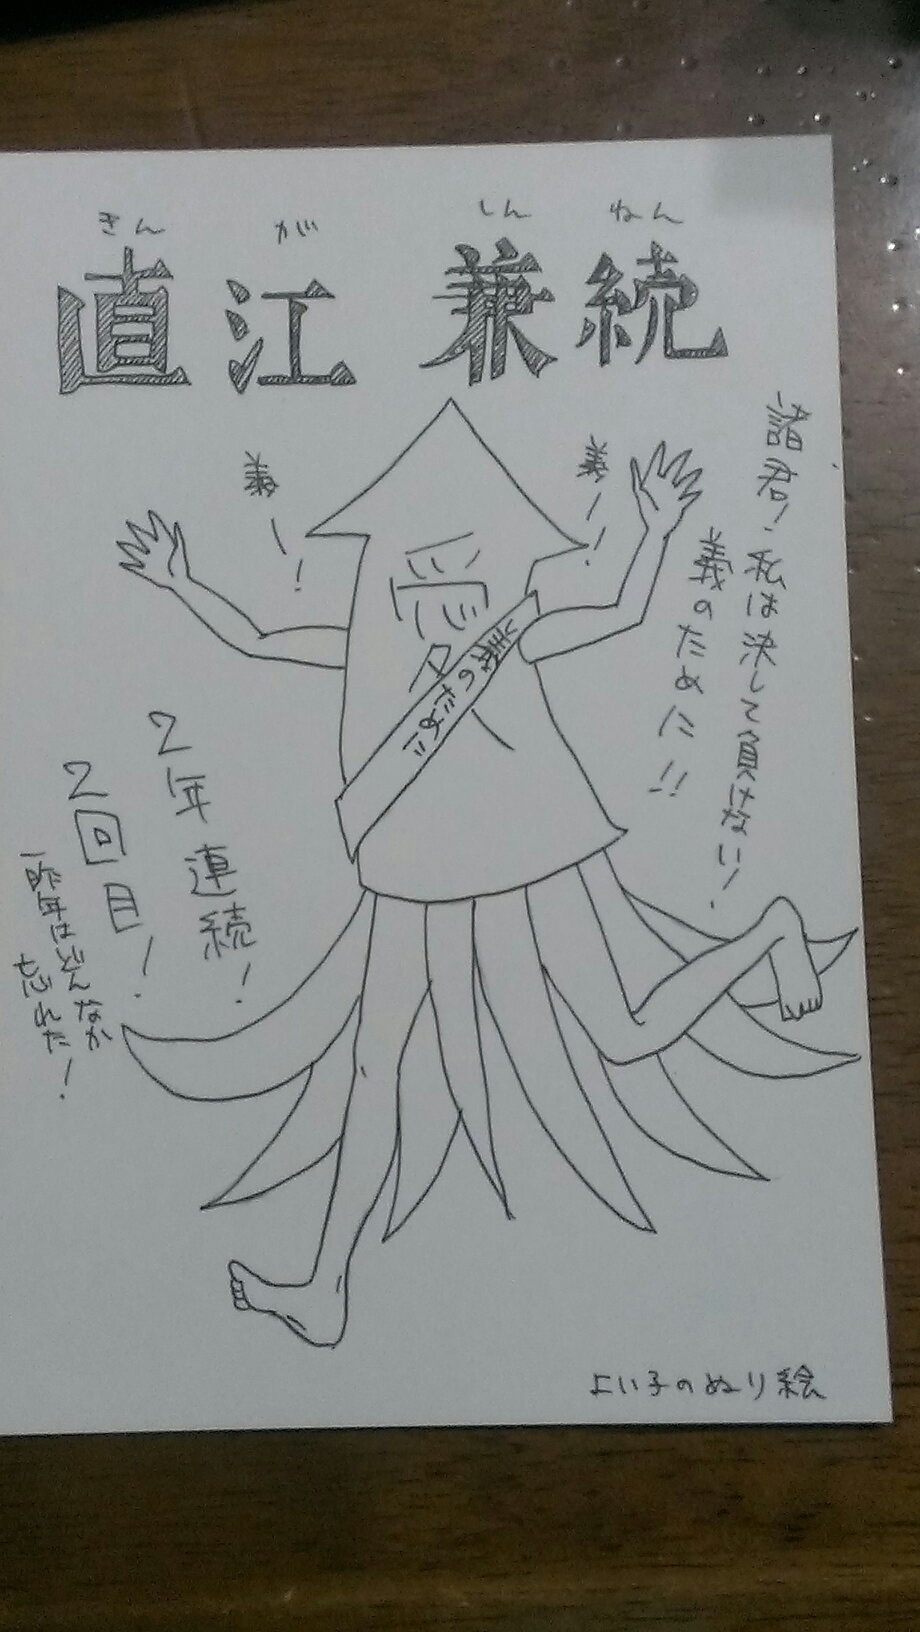 きん が しん ねん
直江 兼続
諸君！私は決して負けない！
義のために!!
義ー！
義ー！
愛
義のだめに
2年連続！
2回目！
一昨年はどんなか
忘れた！
よい子のぬり絵